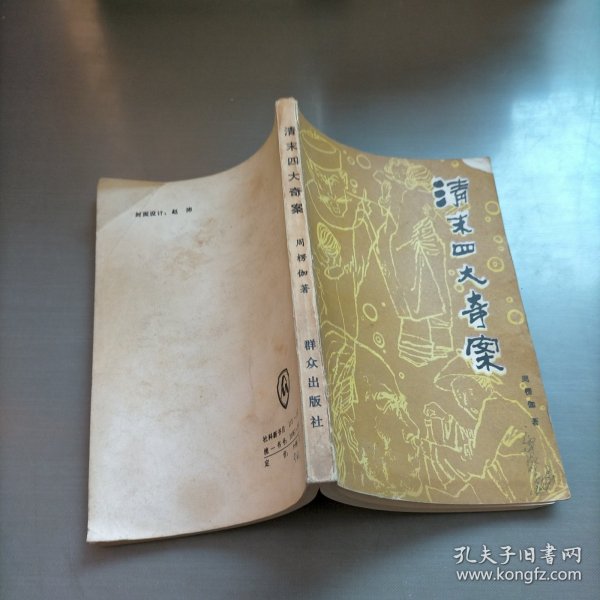 清末四大奇案
周楞伽 著
清末四大奇案
周楞伽著
群众出版社
封面设计：赵沛
社科新书目
统一书号：
定 价：
孔夫子旧书网
www.kongfz.com